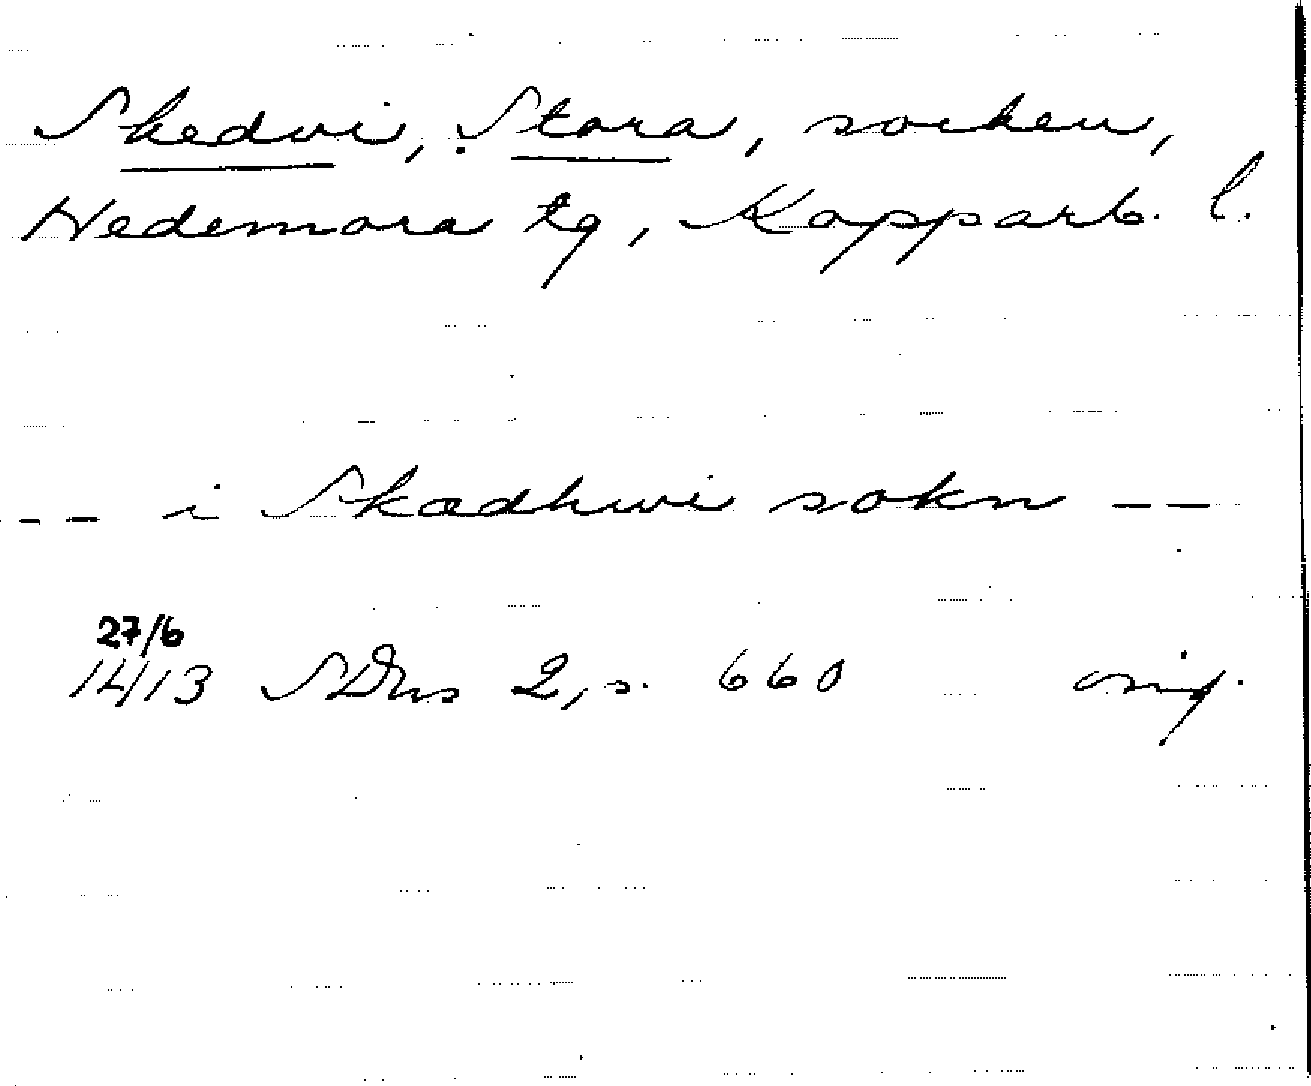 Skedvi, Stora, socken,
Hedemora tg, Kopparb. l.
-- i Skædhwi sokn --
27/6
1413 SDns 2, s. 660 orig.